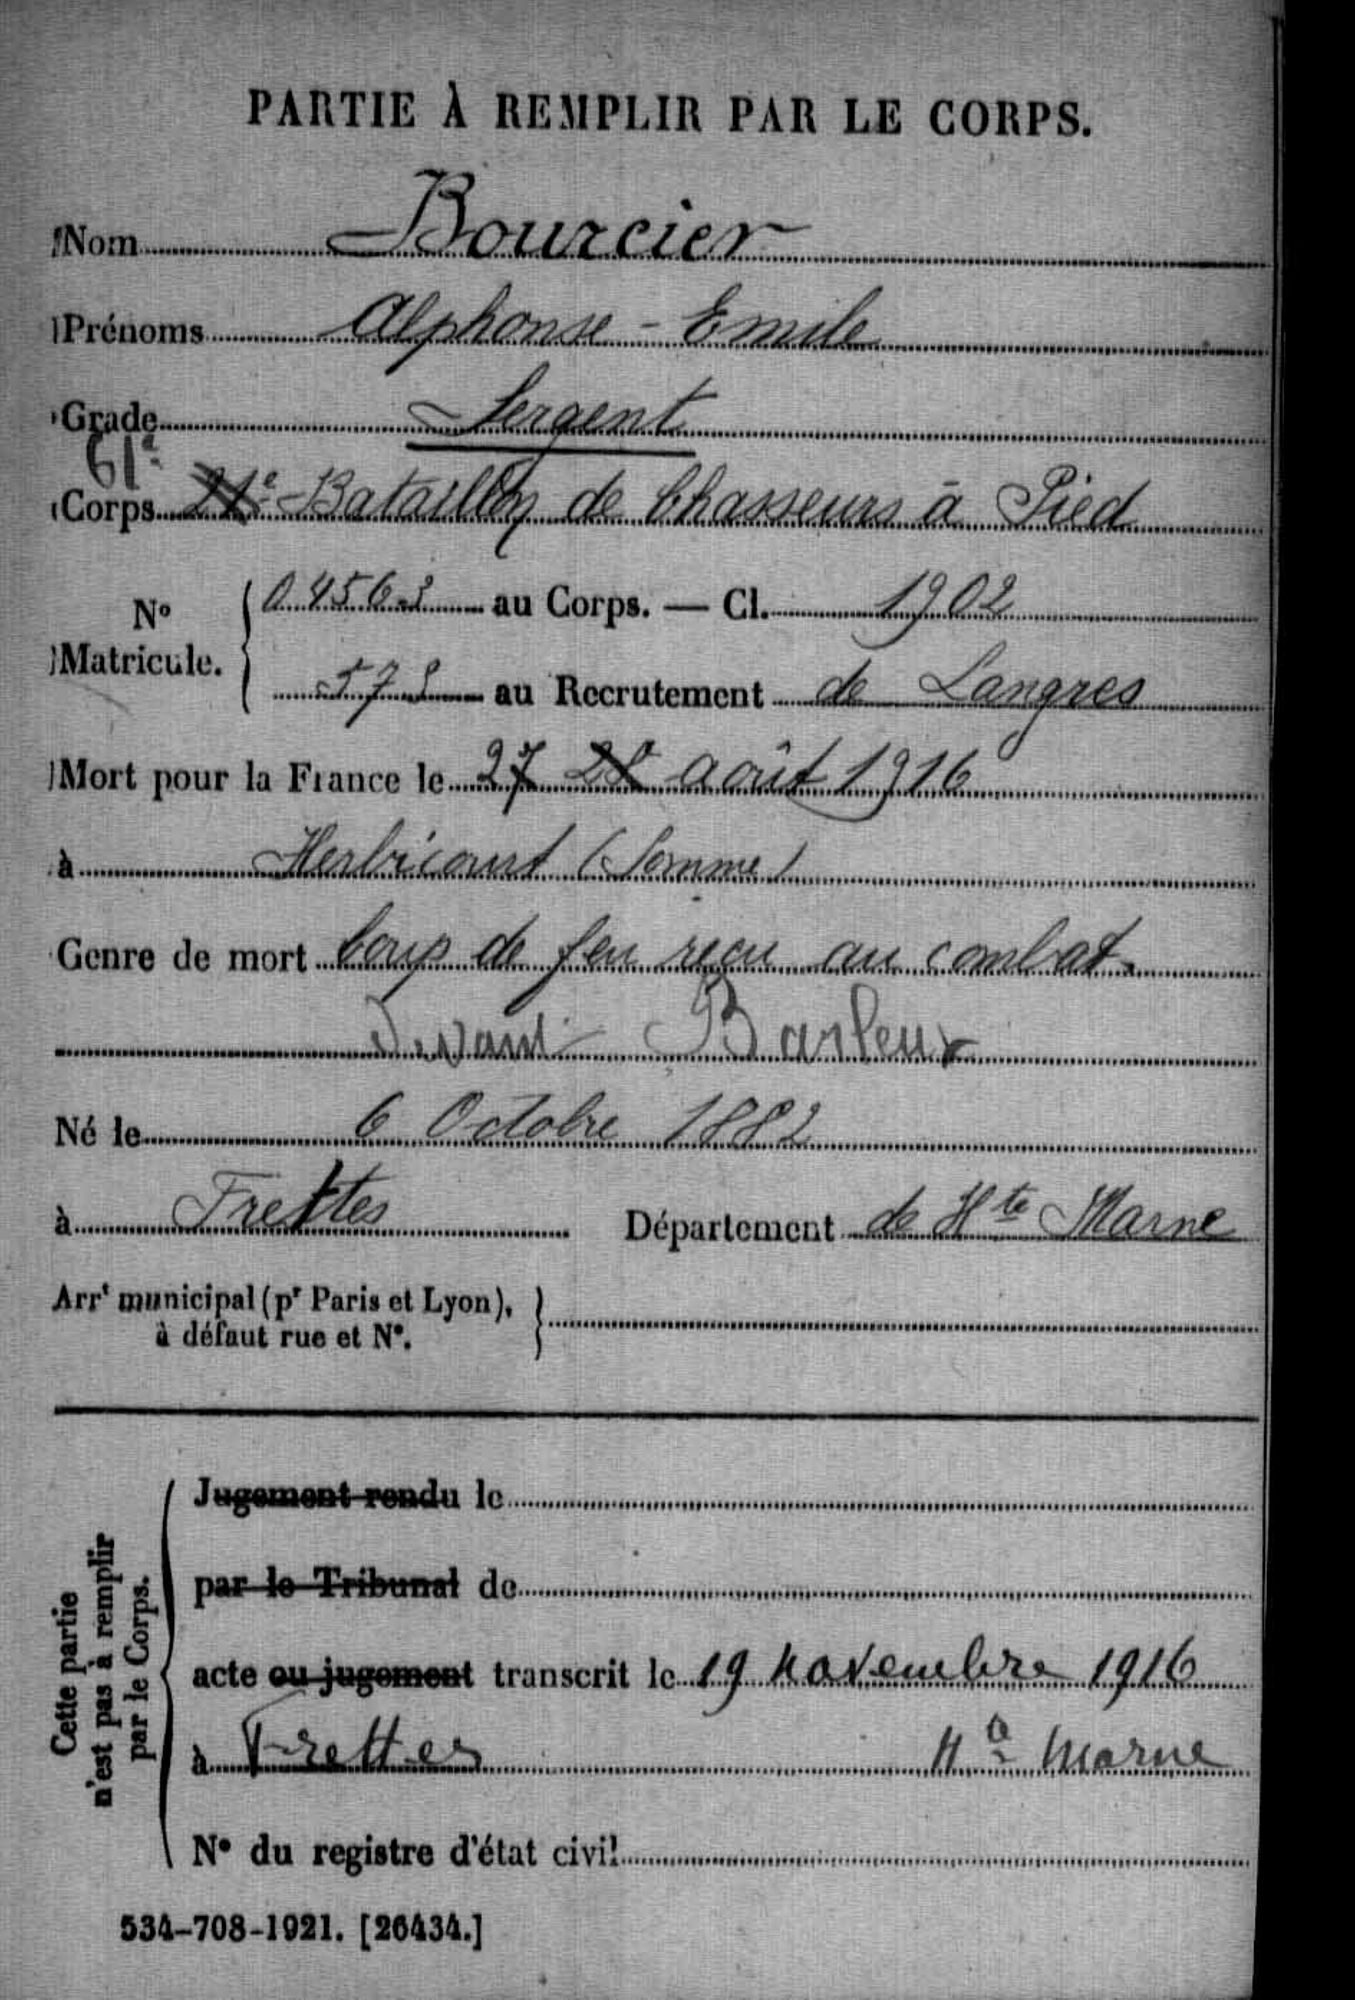 PARTIE À REMPLIR PAR LE CORPS.
Nom Bourcier
Prénoms Alphonse - Emile
Grade Sergent
61e
Corps 21e Bataillon de Chasseurs à Pied
N° Matricule. 04563 au Corps. — Cl. 1902
573 au Recrutement de Langres
Mort pour la France le 27 28 août 1916
à Herbicourt (Somme)
Genre de mort Coup de feu reçu au combat.
Devant Barleux
Né le 6 Octobre 1882
à Frettes Département de Hte Marne
Arrt municipal (pr Paris et Lyon),
à défaut rue et N°.
Cette partie
n'est pas à remplir
par le Corps.
Jugement rendu le
par le Tribunal de
acte ou jugement transcrit le 19 novembre 1916
à Frettes Hte Marne
N° du registre d'état civil
534-708-1921. [26434.]